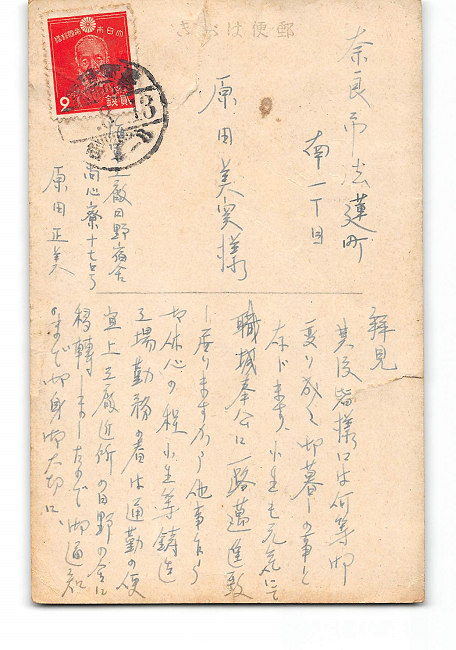 郵便はがき
奈良市法蓮町
南一丁目
原田美実様
工廠日野宿舎
尚心寮十七号
原田正美
拝見
其後皆様には何等御
変り成く御暮しの事と
存じます 小生も元気にて
職域奉公に一路邁進致
し居ります故他事乍ら
御休心の程 小生等鋳造
工場勤務の者は通勤の便
宜上工廠近所の日野の舎に
移転しましたので御通知
のまで 御身御大切に